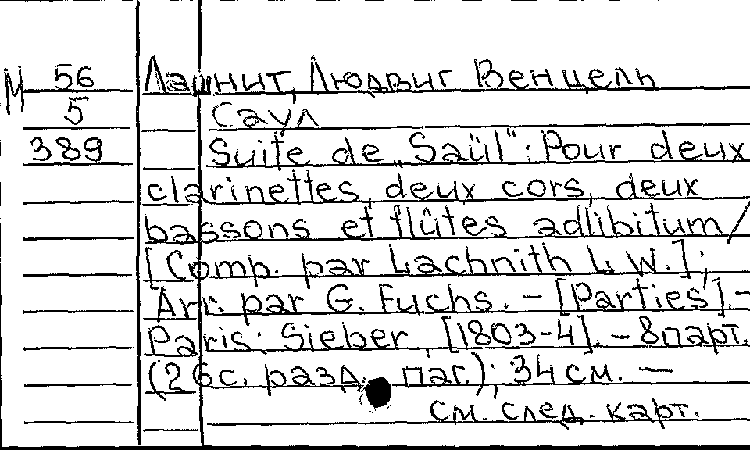 М 56 Лашнит, Людвиг Венцель
5 Саул
389 Suite de „Saül“: Pour deux
clarinettes, deux cors, deux
bassons et flûtes adlibitum/
[Comp. par Lachnith L. W.];
Arr. par G. Fuchs. – [Parties] –
Paris: Sieber, [1803-4]. – 8 парт.
(26 с. разд. паг.); 34 см. —
см. след. карт.